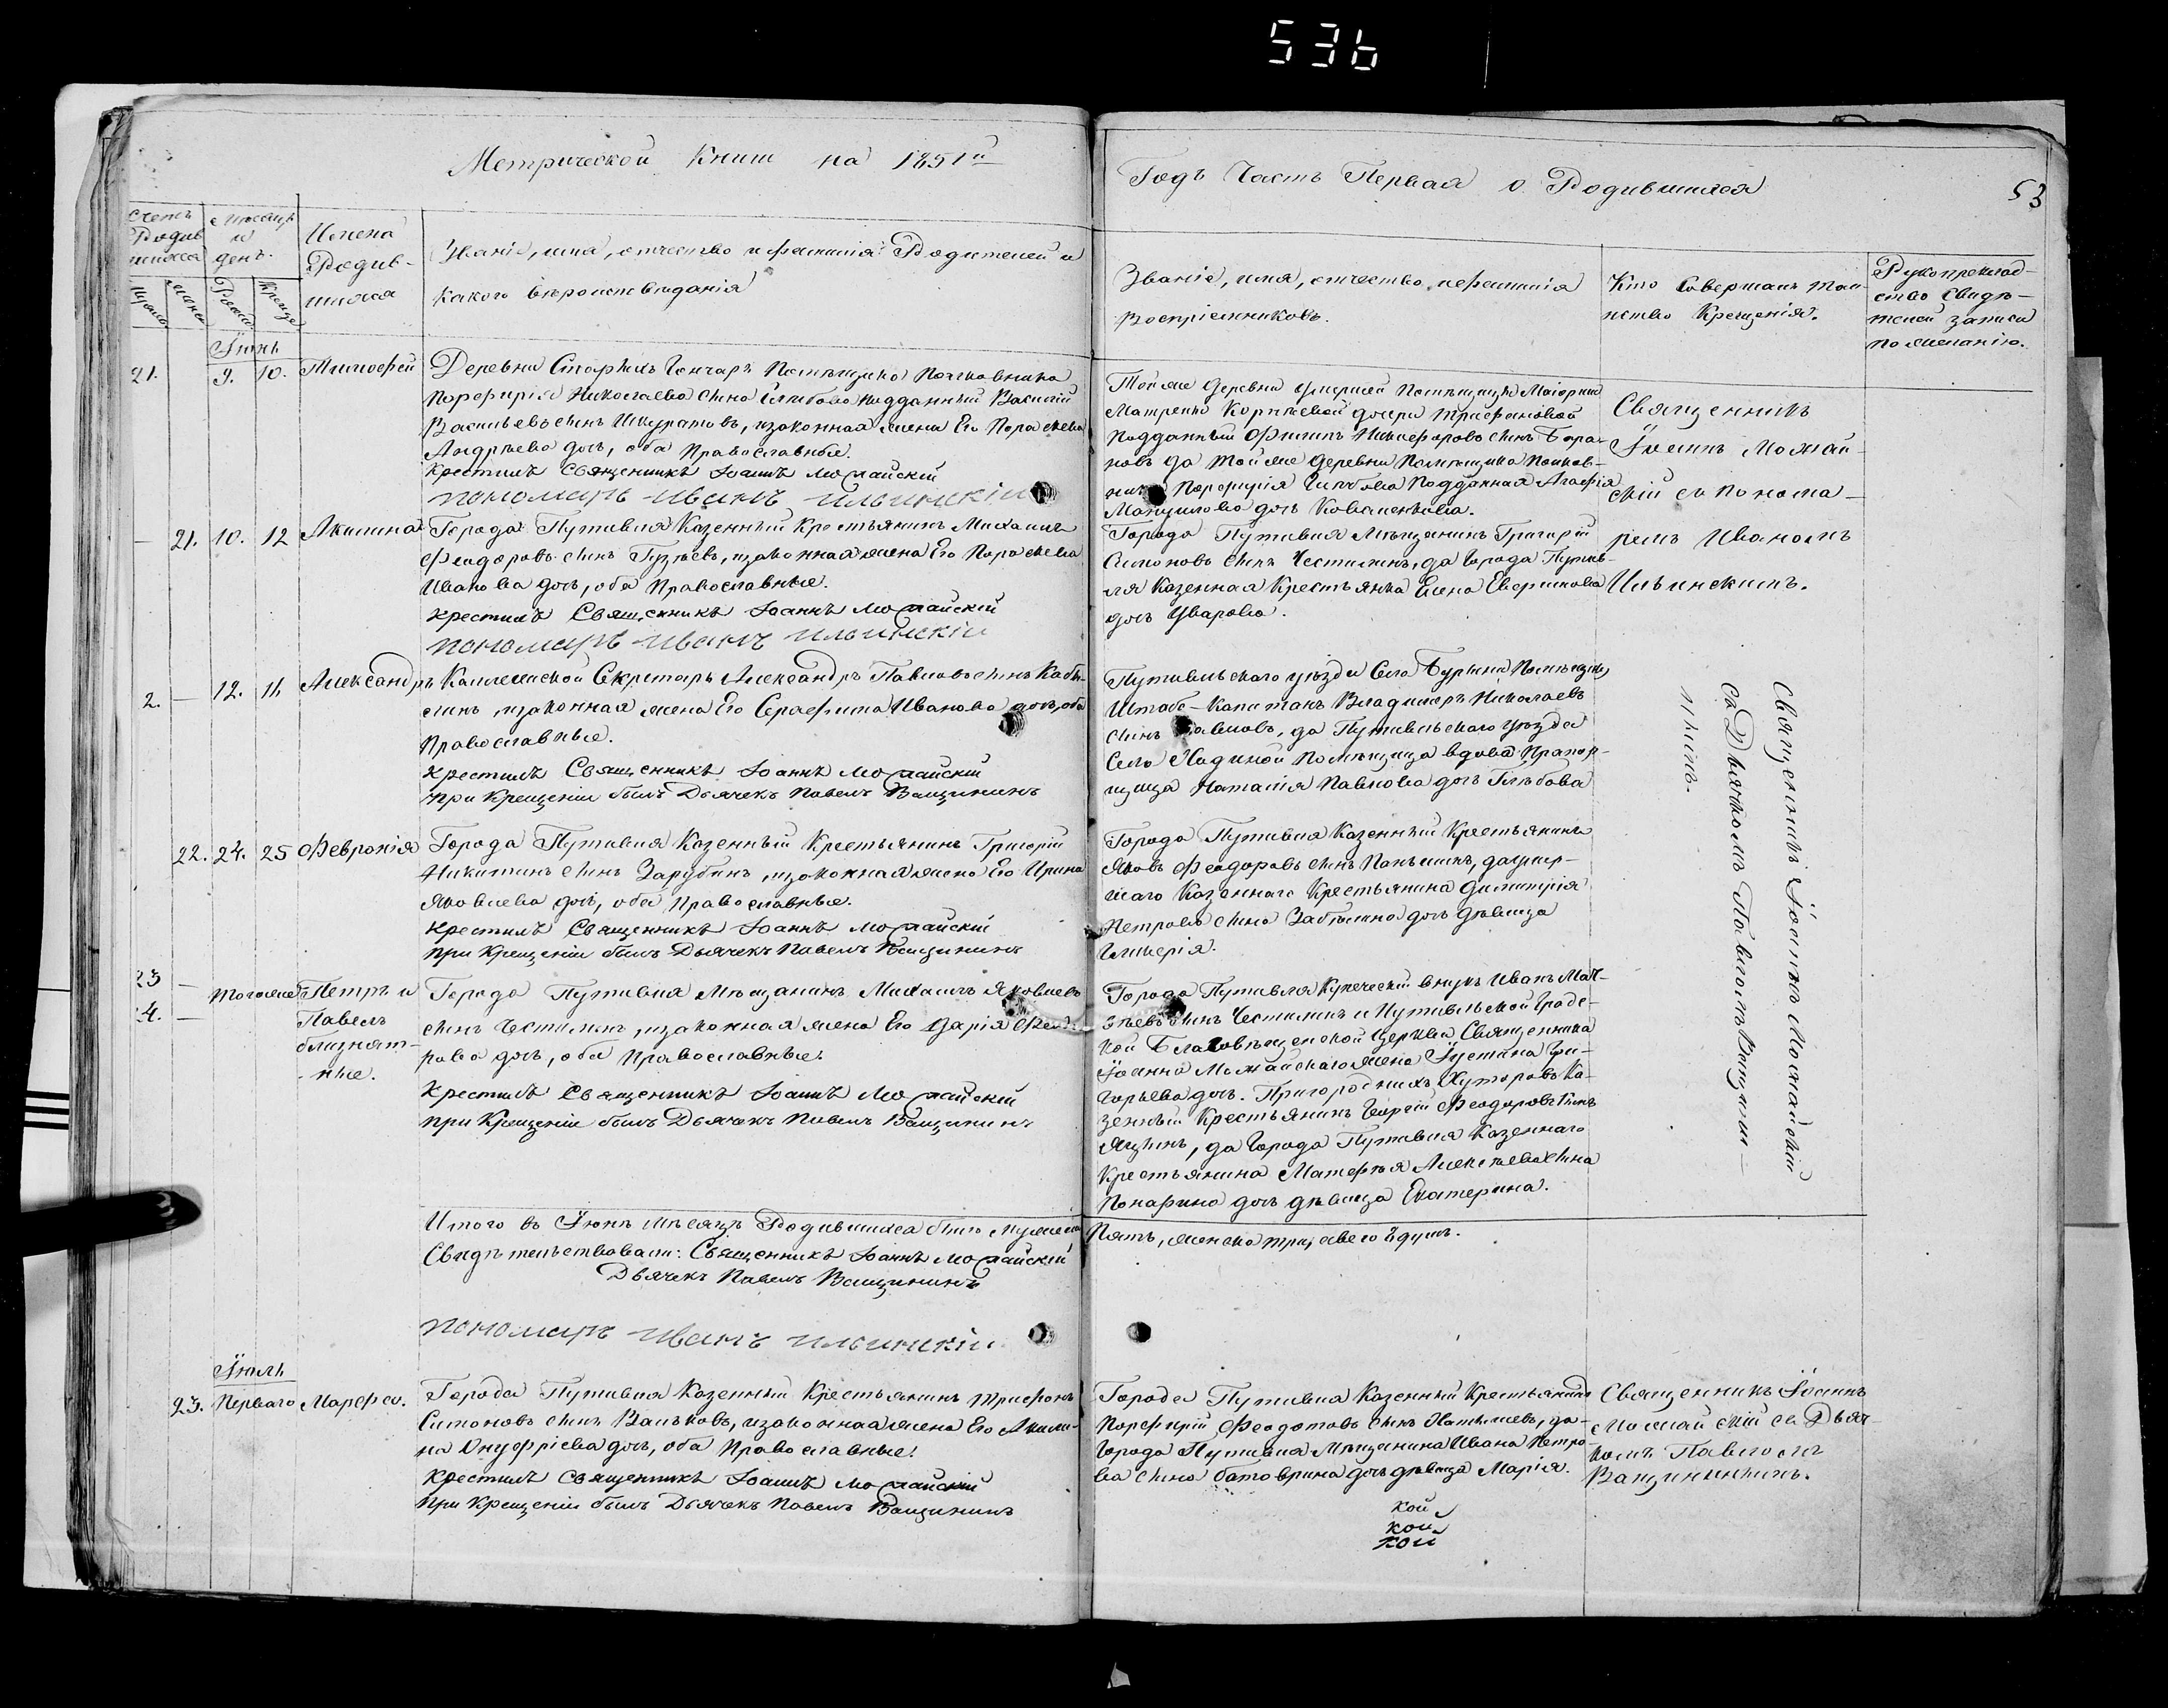 536
Метрической Книги на 1851й
Годъ Часть Первая о Родившихся
53
Счетъ Родившихся
Мѣсяцъ и день.
Имена Родив-
шихся
Званіе, имя, отчество и фамилія Родителей и
какого вѣроисповѣданія
Званіе, имя, отчество и фамилія
Воспріемниковъ.
Кто Совершалъ таи-
нство Крещенія.
Рукоприклад-
ство Свидѣ-
телей записи
по желанію.
Іюнь
21.
9.
10.
Тимофей
Деревни Гончаръ Помѣщика Полковника
Порфирія Николаева сына Глѣбова подданный Василій
Васильевъ сынъ Шкуратовъ, и законная жена Его Параскева
Андрѣева дочь, оба Православные.
Крестилъ Священникъ Іоаннъ Можайскій
Пономарь Иванъ Ильинскій
Той же деревни умершей Помѣщицы Маіорши
Матрены Корнѣевой дочери Трифановой
подданный Филипъ Никифоровъ сынъ Бара-
новъ да той же деревни Помѣщика Полков-
ника Порфирія Глѣбова Подданная Агафія
дочь Коваленкова.
Священникъ
Іоаннъ Можай-
скій съ Понома-
ремъ Иваномъ
Ильинскимъ.
—
21.
10.
12
Акилина
Города Путивля Казенный Крестьянинъ Михаилъ
Феодоровъ сынъ Гузѣевъ, и законная жена Его Параскева
Иванова дочь, оба Православные.
Крестилъ Священникъ Іоаннъ Можайскій
Пономарь Иванъ Ильинскій
Города Путивля Мѣщанинъ Григорій
Симоновъ сынъ Честилинъ, да Города Путив-
ля Казенная Крестьянка Елена
дочь Уварова.
2.
—
12.
11.
Александръ
Коллежской Секретарь Александръ Павловъ сынъ Кобы-
линъ, и законная жена Его Серафима Иванова дочь, оба
Православные.
Крестилъ Священникъ Іоаннъ Можайскій
При Крещеніи былъ Дьячекъ Павелъ Ващининъ
Путивльскаго уѣзда Села Бурыни Помѣщикъ
Штабс-Капитанъ Владимеръ Николаевъ
сынъ Павловъ, да Путивльскаго уѣзда
Села Помѣщица вдова Прапор-
щица Наталія Павлова дочь Глѣбова
Священникъ Іоаннъ Можайскій
съ Дьячкомъ Павломъ Ващини-
нымъ.
22.
24.
25
Февронія
Города Путивля Казенный Крестьянинъ Григорій
Никитинъ сынъ Зарубинъ, и законная жена Его Ирина
Яковлева дочь, оба Православные.
Крестилъ Священникъ Іоаннъ Можайскій
при Крещеніи былъ Дьячекъ Павелъ Ващининъ
Города Путивля Казенный Крестьянинъ
Яковъ Феодоровъ сынъ да умер-
шаго Казеннаго Крестьянина Димитрія
Петрова сына дочь дѣвица
Гликерія.
23
—
24.
—
того же
Петръ и
Павелъ
близнят-
ные.
Города Путивля Мѣщанинъ Михаилъ Яковлевъ
сынъ Честилинъ, и законная жена Его Дарія Феодо-
рова дочь, оба Православные.
Крестилъ Священникъ Іоаннъ Можайскій
при Крещеніи былъ Дьячекъ Павелъ Ващининъ
Города Путивля Купеческій внукъ Иванъ Мат-
вѣевъ сынъ Честилинъ и Путивльской Градс-
кой Благовѣщенской Церкви Священника
Іоанна Можайскаго жена Іустина Гри-
горьева дочь. Пригородныхъ Хуторовъ Ка-
зенный Крестьянинъ Георгій Феодоровъ сынъ
Яцынъ, да Города Путивля Казеннаго
Крестьянина Матфѣя Алексѣева сына
Понарина дочь дѣвица Екатерина.
Итого въ Іюнѣ мѣсяцѣ Родившихся было мужеска
Пять, женска три, а всего 8 душъ.
Свидѣтельствовали: Священникъ Іоаннъ Можайскій
Дьячекъ Павелъ Ващининъ
Пономарь Иванъ Ильинскій
Іюль
23.
Перваго
Марфа.
Города Путивля Казенный Крестьянинъ Трифонъ
Симоновъ сынъ Вальковъ, и законная жена Его Акили-
на Онуфріева дочь, оба Православные.
Крестилъ Священникъ Іоаннъ Можайскій
При Крещеніи былъ Дьячекъ Павелъ Ващининъ
Города Путивля Казенный Крестьянинъ
Порфирій Феодотовъ сынъ да
Города Путивля Мѣщанина Ивана Петро-
ва сына Батоврина дочь дѣвица Марія.
Священникъ Іоаннъ
Можайскій съ Дьяч-
комъ Павломъ
Ващининымъ.
кой
кой
кой